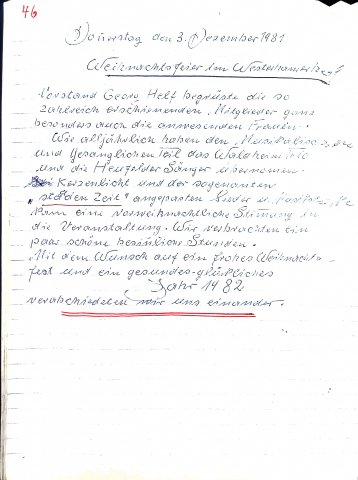 46
Donnerstag den 3. Dezember 1981
Weihnachtsfeier im
Vorstand Georg Helf begrüßte die so
zahlreich erschienenden Mitglieder ganz
besonders auch die anwesenden Frauen.
Wie alljährlich haben den
und gesanglichen Teil das Waldheim Trio
und die Heufelder Sänger übernommen.
Bei Kerzenlicht und der sogenannten
"stillen Zeit" angepassten Lieder u.
kam eine vorweihnachtliche Stimung in
die Veranstaltung. Wir verbrachten ein
paar schöne besinnliche Stunden.
Mit dem Wunsch auf ein frohes Weihnachts-
fest und ein gesundes-glückliches
Jahr 1982
verabschiedeten wir uns einander.